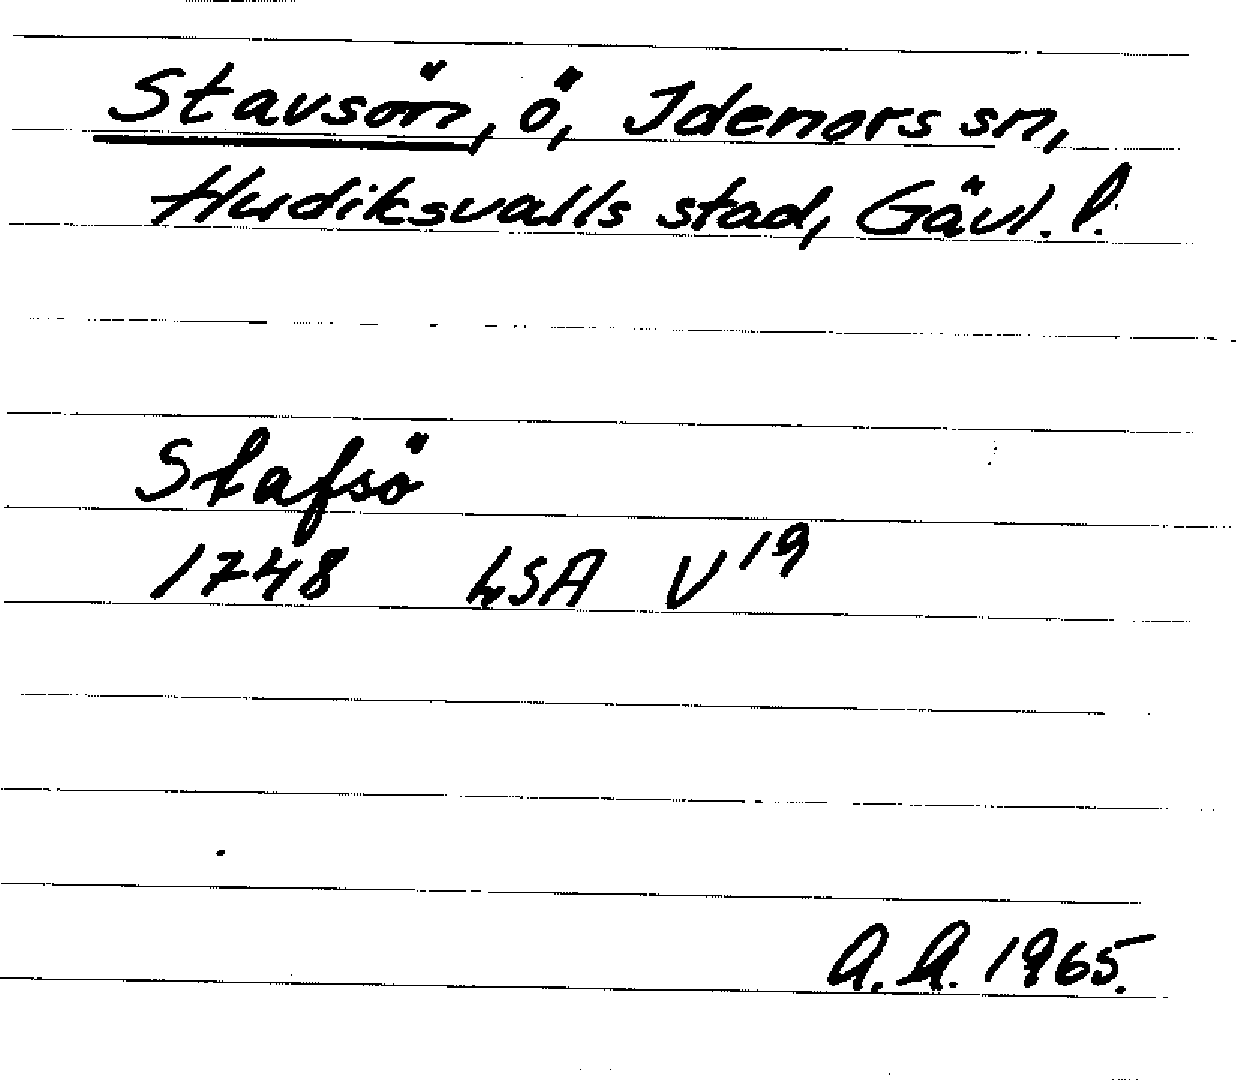 Stavsön, ö, Idenors sn,
Hudiksvalls stad, Gävl. l.
Stafsö
1748 LSA V19
A.A. 1965.